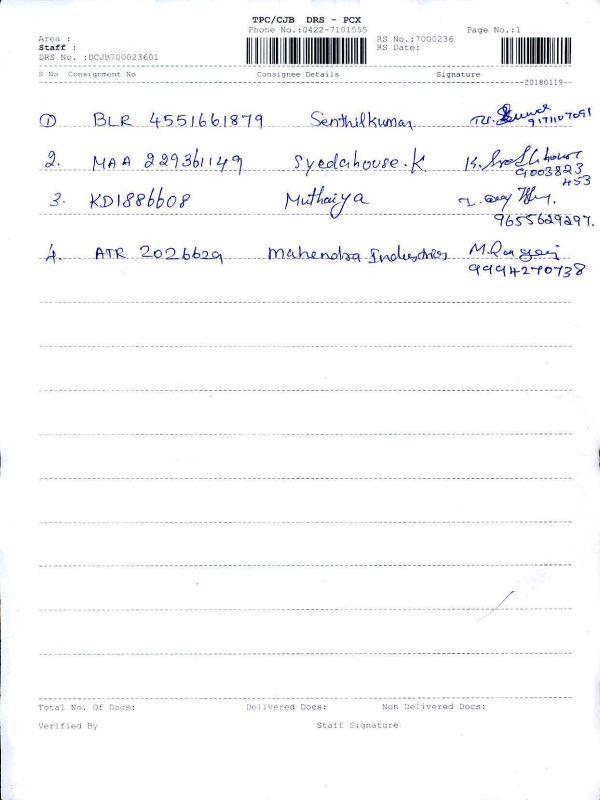 TPC/CJB DRS - PCX
Phone No.:0422-7101555
Page No.:1
Area :
RS No.:7000236
Staff :
RS Date:
DRS No. :DCJB700023601
S No Consignment No Consignee Details Signature
20180119
1 BLR 4551661879 Senthilkumar
9171107091
2. MAA 229361149 Syedahouse.K
9003823
453
3. KD1886608 Muthaiya
9655629297.
4. ATR 2026629 Mahendra Industries
9994270738
Total No. Of Docs: Delivered Docs: Non Delivered Docs:
Verified By Staff Signature